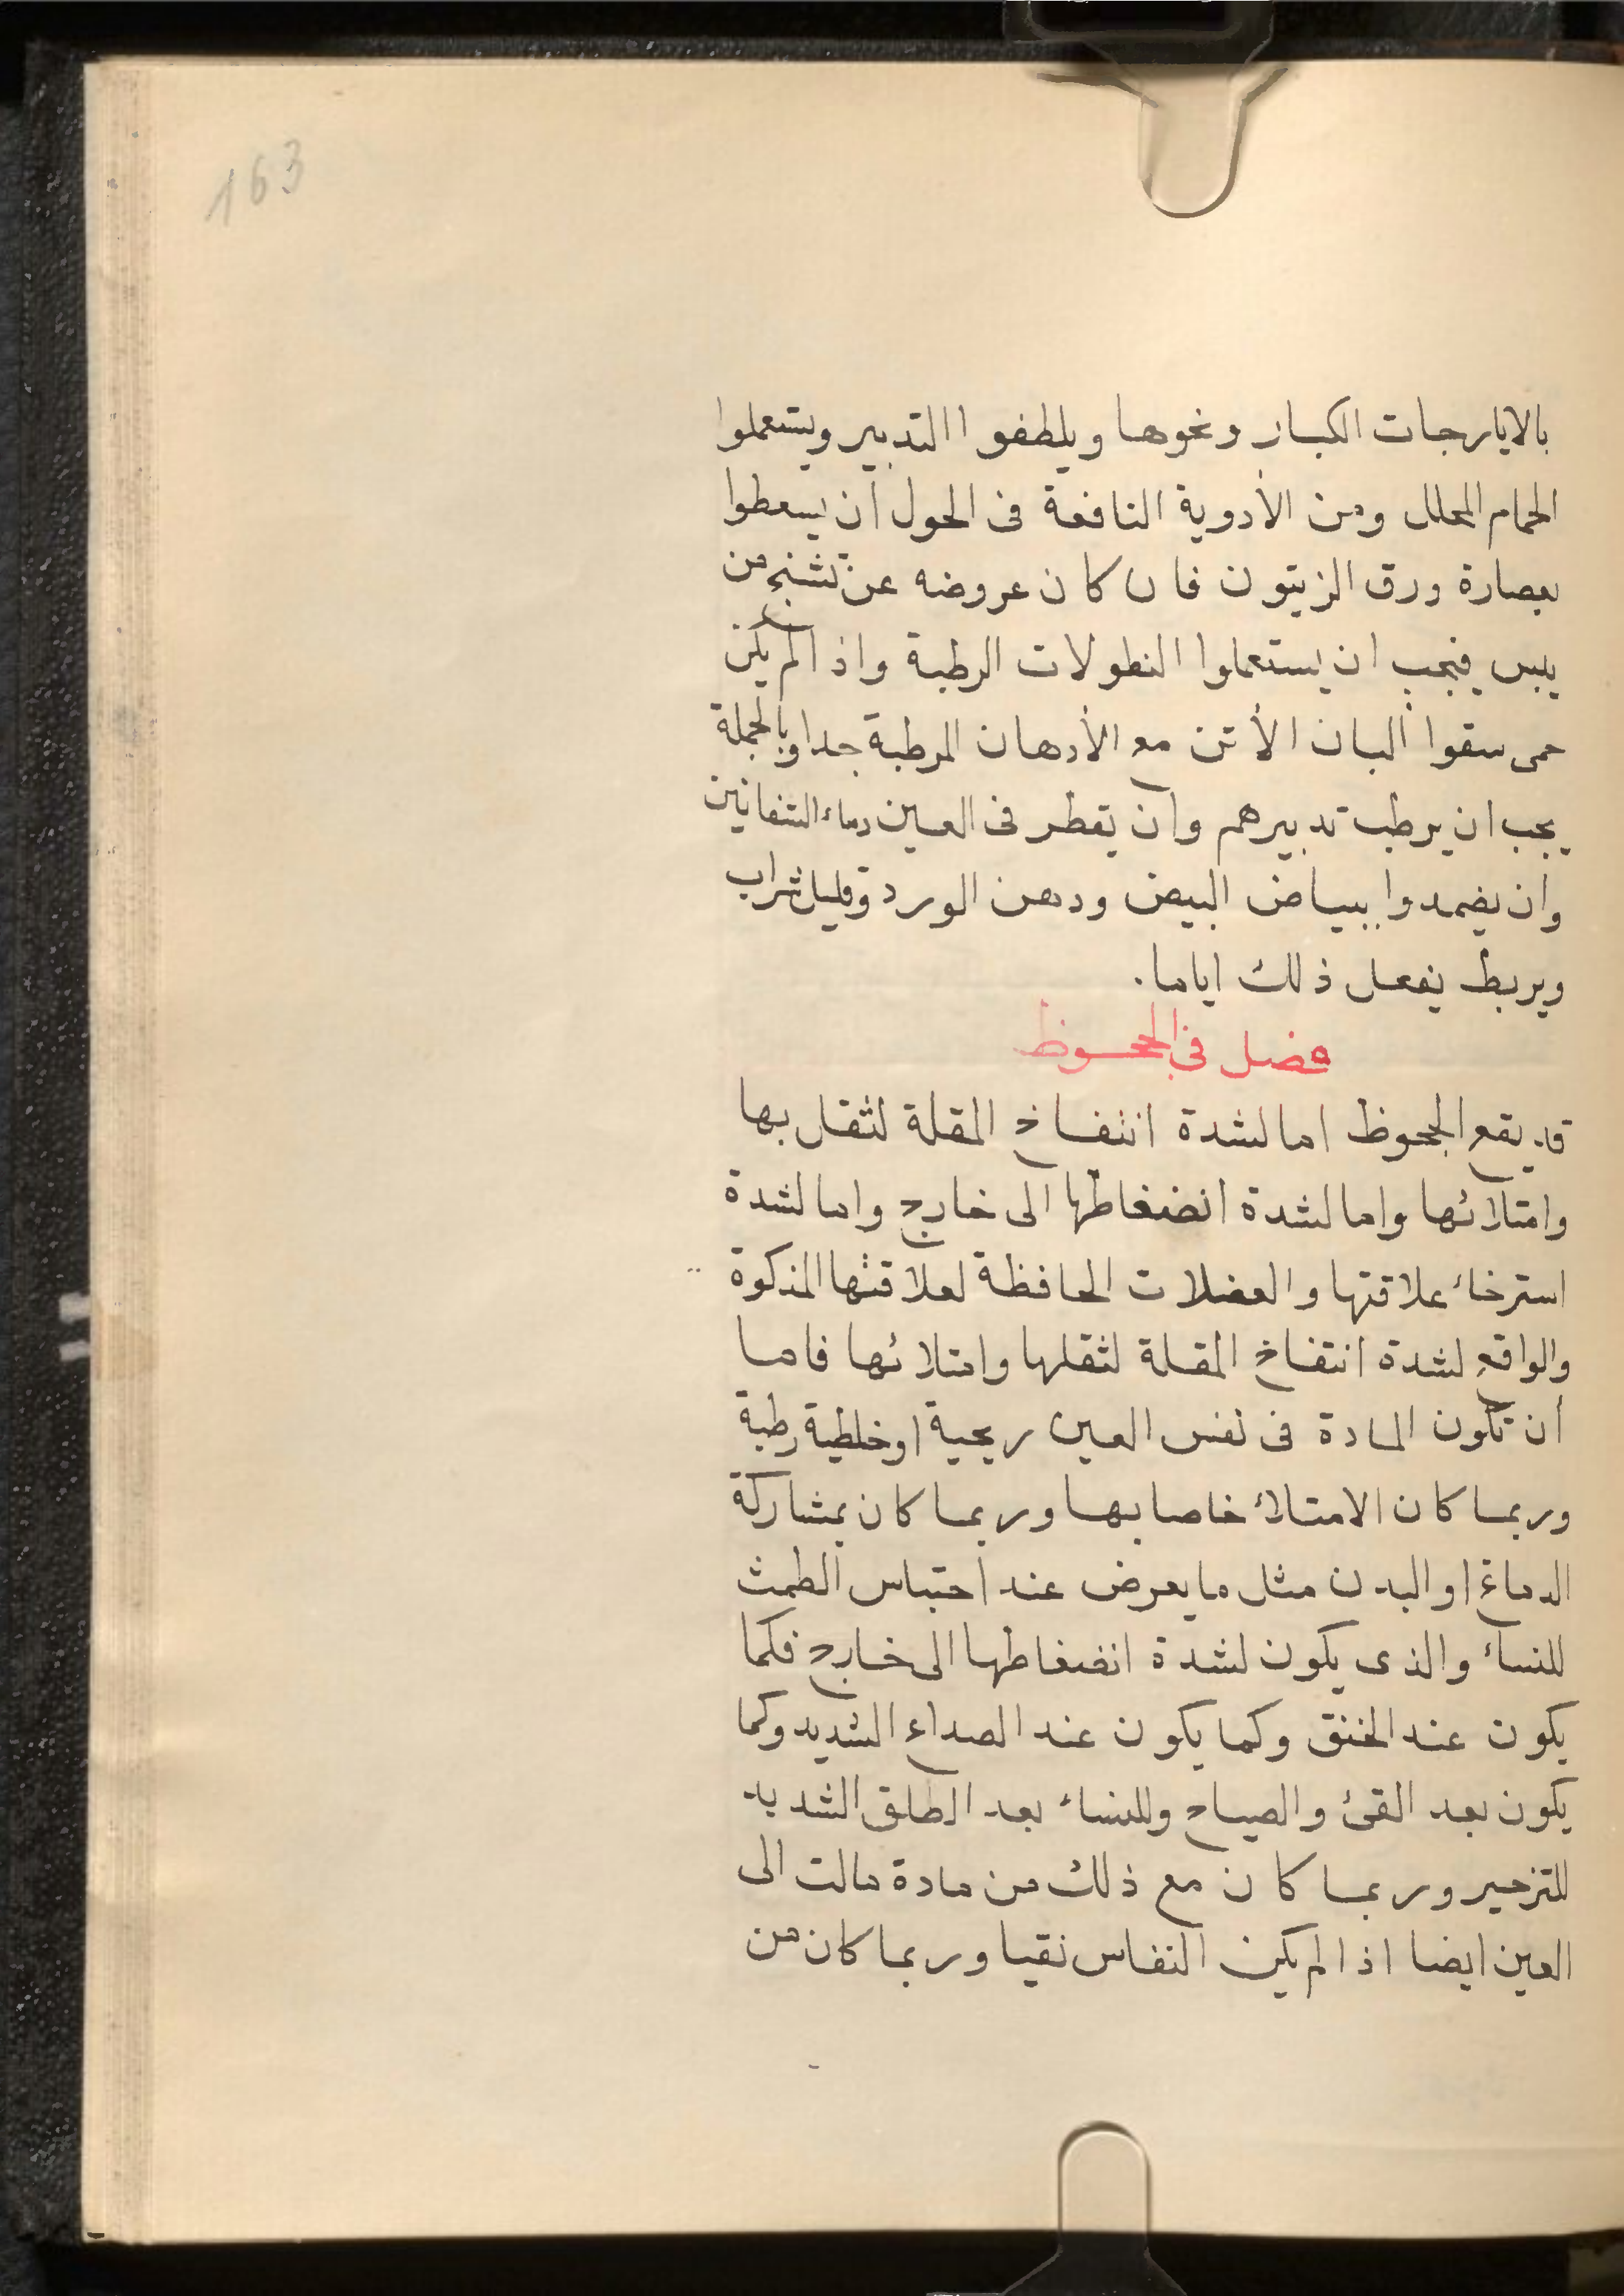 163
بالايارجات الكبار ونحوها ويلطفوا التدبير ويستعملوا
الحمام المحلل ومن الأدوية النافعة فى الحول أن يسعطوا
بعصارة ورق الزيتون فان كان عروضه عن تشنج من
يبس فيجب ان يستعملوا النطولات الرطبة واذا لم يكن
حمى سقوا ألبان الأتن مع الأدهان المرطبة جدا وبالجملة
يجب ان يرطب تدبيرهم وان يقطر فى العين دماء الشفانين
وان يضمدوا ببياض البيض ودهن الورد وقليل شراب
ويربط يفعل ذلك اياما.
فصل فى الجحوظ
قد يقع الجحوظ اما لشدة انتفاخ المقلة لثقل بها
وامتلائها واما لشدة انضغاطها الى خارج واما لشدة
استرخاء علاقتها والعضلات الحافظة لعلاقتها المذكوة
والواقع لشدة انتفاخ المقلة لثقلها وامتلائها فاما
أن تكون المادة فى نفس العين ريحية او خلطية رطبة
وربما كان الامتلاء خاصا بها وربما كان بمشاركة
الدماغ او البدن مثل ما يعرض عند احتباس الطمث
للنساء والذى يكون لشدة انضغاطها الى خارج فكما
يكون عند الخنق وكما يكون عند الصداع الشديد وكما
يكون بعد القئ والصياح وللنساء بعد الطلق الشديد
للتزحير وربما كان مع ذلك من مادة مالت الى
العين ايضا اذا لم يكن النفاس نقيا وربما كان من